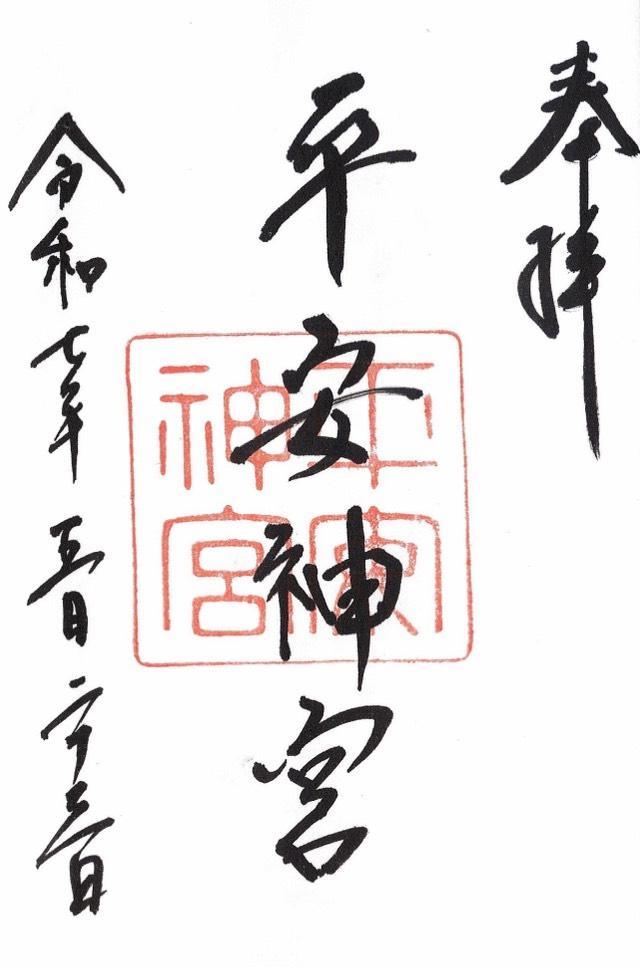 奉拝
平安神宮
平安
神宮
令和七年五月二十三日